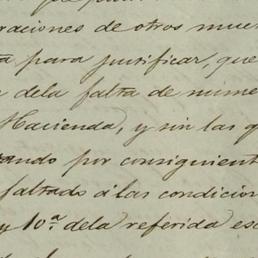 raciones de otros mue
ta para justificar, que
a dela falta de nume
Hacienda, y sin las q
tando por consiguient
faltado á las condicion
y 10ª dela referida es